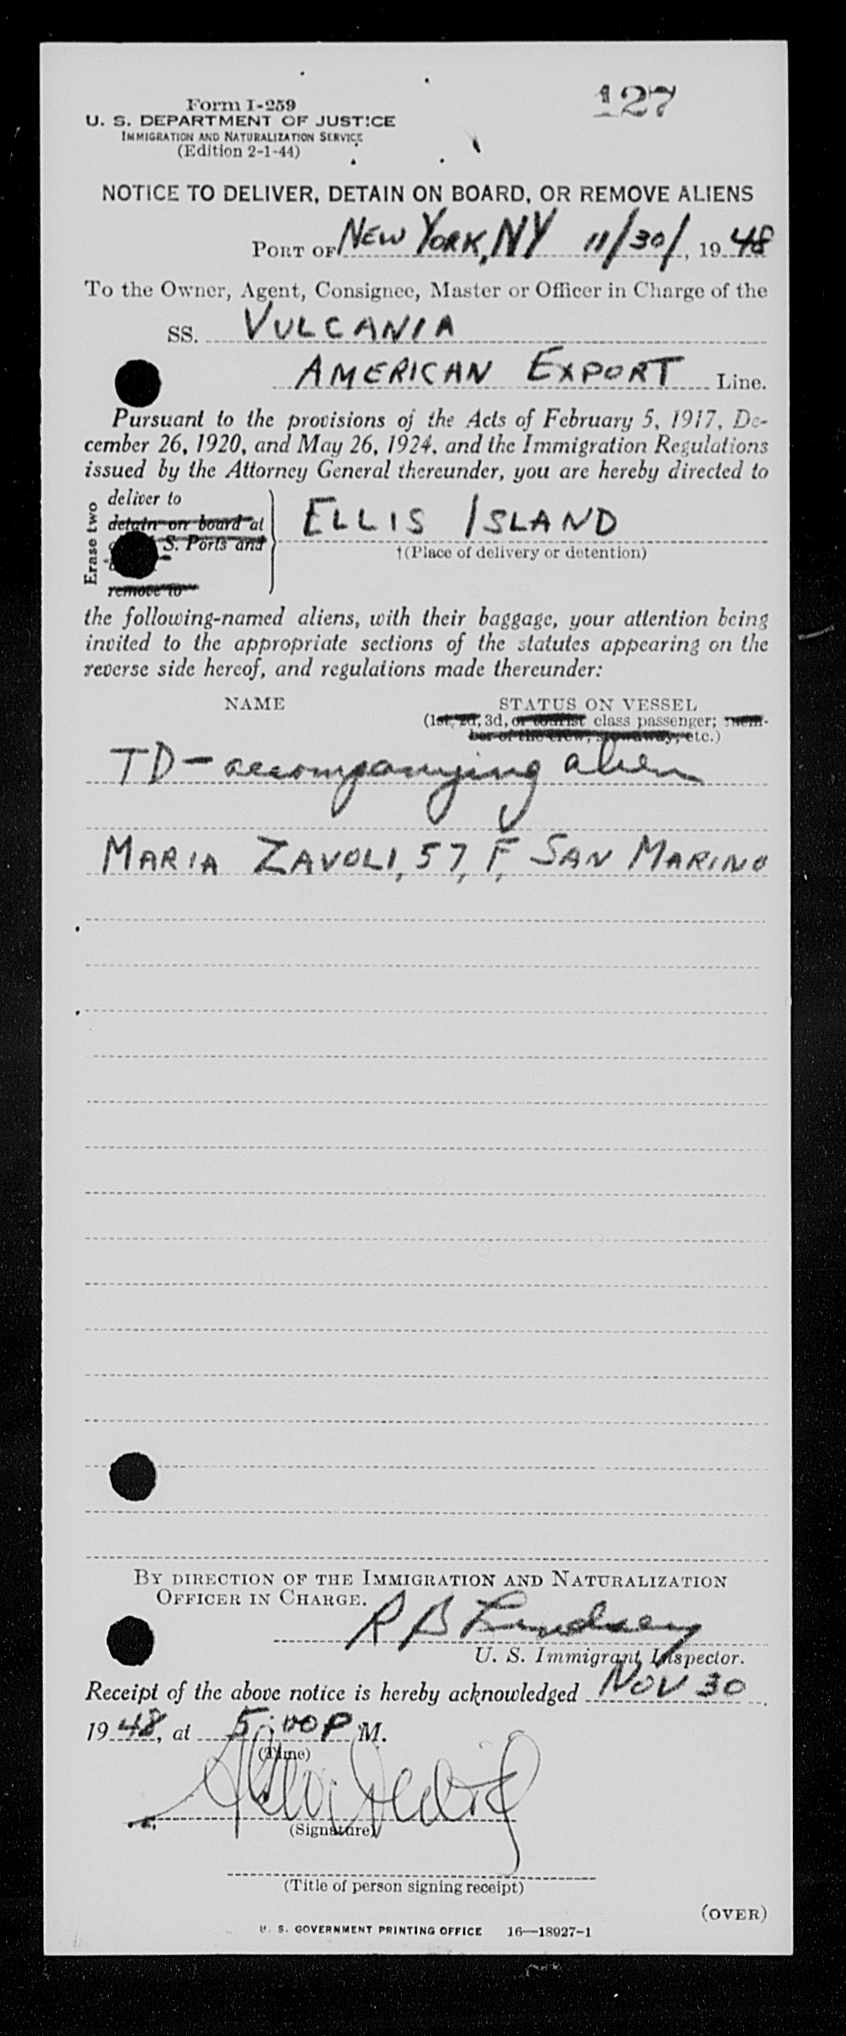 127
Form I-259
U. S. DEPARTMENT OF JUSTICE
IMMIGRATION AND NATURALIZATION SERVICE
(Edition 2-1-44)
NOTICE TO DELIVER, DETAIN ON BOARD, OR REMOVE ALIENS
PORT OF NEW YORK, NY 11/30/, 1948
To the Owner, Agent, Consignee, Master or Officer in Charge of the
SS. VULCANIA
AMERICAN EXPORT Line.
Pursuant to the provisions of the Acts of February 5, 1917, De-
cember 26, 1920, and May 26, 1924, and the Immigration Regulations
issued by the Attorney General thereunder, you are hereby directed to
Erase two
deliver to
detain on board at
S. Ports and
remove to
ELLIS ISLAND
†(Place of delivery or detention)
the following-named aliens, with their baggage, your attention being
invited to the appropriate sections of the statutes appearing on the
reverse side hereof, and regulations made thereunder:
NAME STATUS ON VESSEL
(1st, 2d, 3d, or tourist class passenger; mem-
ber of the crew, stowaway, etc.)
TD - accompanying alien
MARIA ZAVOLI, 57, F, SAN MARINO
BY DIRECTION OF THE IMMIGRATION AND NATURALIZATION
OFFICER IN CHARGE.
R B Lindsey
U. S. Immigrant Inspector.
Receipt of the above notice is hereby acknowledged NOV 30
1948, at 5:00 P M.
(Time)
(Signature)
(Title of person signing receipt)
(OVER)
U. S. GOVERNMENT PRINTING OFFICE 16—18927-1